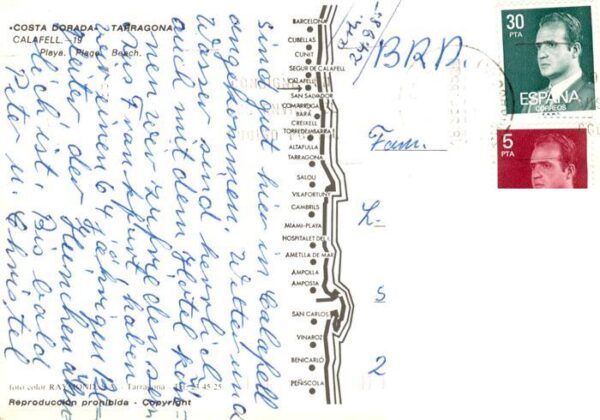 «COSTA DORADA» TARRAGONA
CALAFELL. - 19
Playa. Plage. Beach.
sind gut hier in Calafell
angekommen. Wetter und
Wasser sind herrlich,
auch mit dem Hotel kön-
nen wir zufrieden sein.
haben
64 jährigen
leiter der
lich ist. Bis bald
u. Christel
foto color RAYMOND Tarragona
Reproducción prohibida - Copyright
BARCELONA
CUBELLAS
CUNIT
SEGUR DE CALAFELL
CALAFELL
SAN SALVADOR
COMARRUGA
BARÁ
CREIXELL
TORREDEMBARRA
ALTAFULLA
TARRAGONA
SALOU
VILAFORTUNY
CAMBRILS
MIAMI-PLAYA
HOSPITALET DEL I.
AMETLLA DE MAR
AMPOLLA
AMPOSTA
SAN CARLOS
VINAROZ
BENICARLÓ
PEÑISCOLA
erh.
24.9.85
BRD.
Fam.
2
30
PTA
ESPAÑA
CORREOS
5
PTA